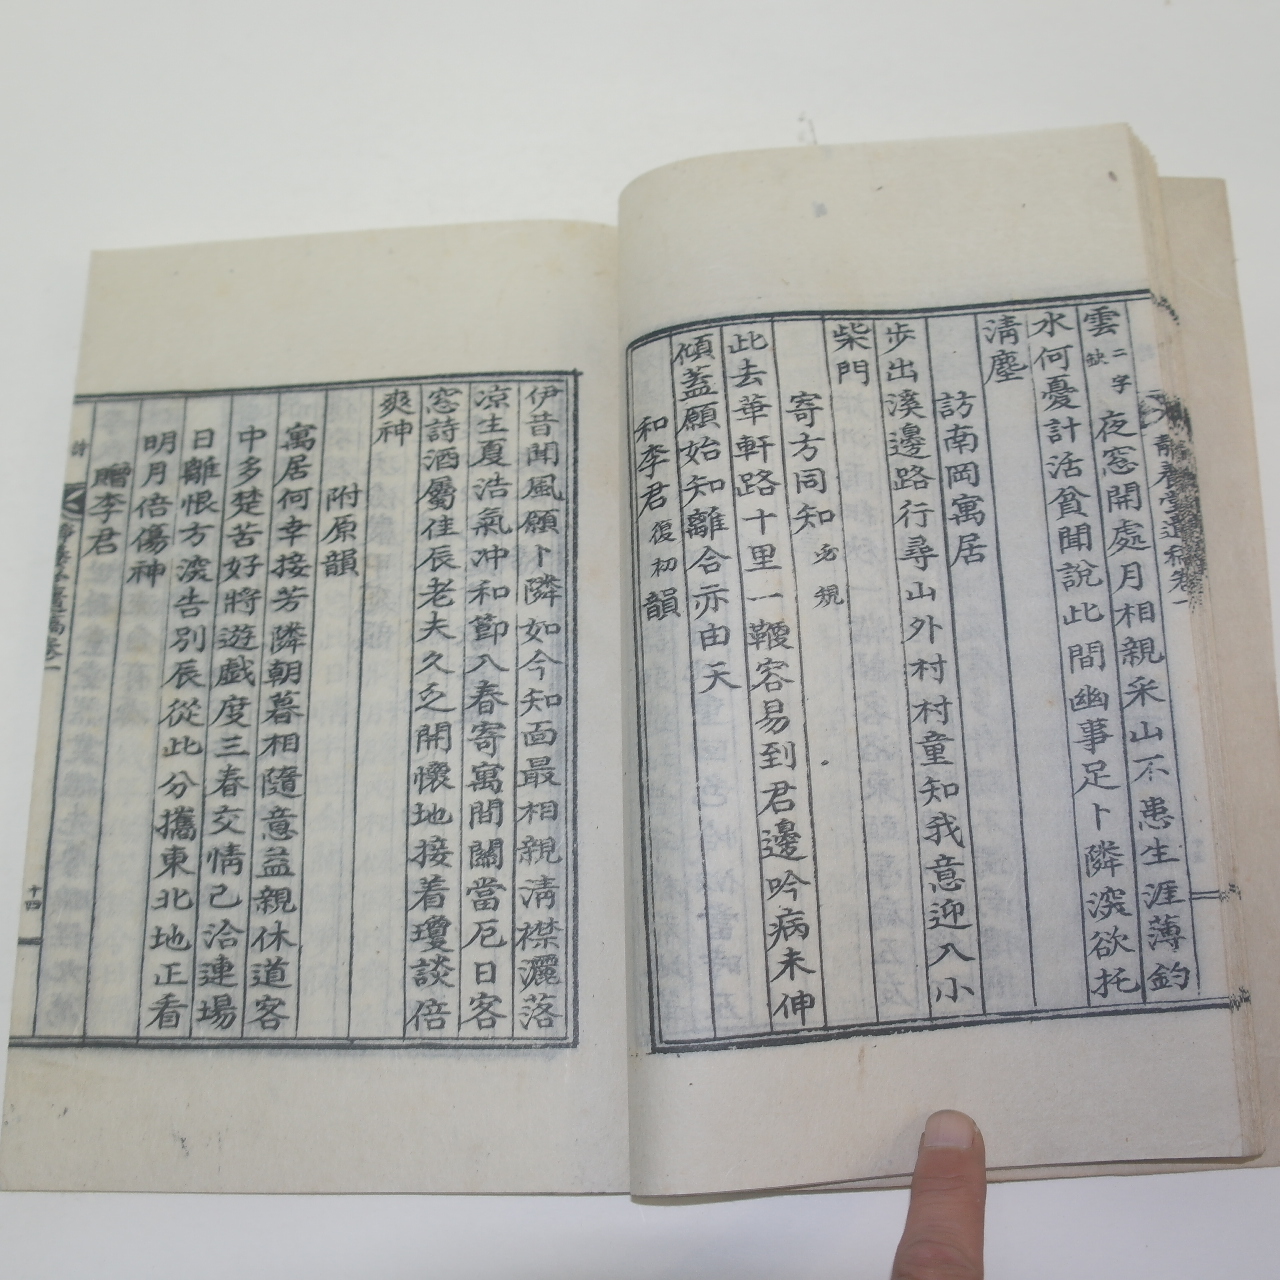 靜養堂遺稿卷一
雲二字缺夜窓開處月相親采山不患生涯薄釣
水何憂計活貧聞說此間幽事足卜隣深欲托
淸塵
訪南岡寓居
步出溪邊路行尋山外村村童知我意迎入小
柴門
寄方同知
此去華軒路十里一鞭容易到君邊吟病未伸
傾蓋願始知離合亦由天
和李君復初韻
伊昔聞風願卜隣如今知面最相親淸襟灑落
凉生夏浩氣冲和節入春寄寓間關當厄日客
窓詩酒屬佳辰老夫久乏開懷地接着瓊談倍
爽神
附原韻
寓居何幸接芳隣朝暮相隨意益親休道客
中多楚苦好將遊戱度三春交情已洽連場
日離恨方深告別辰從此分攜東北地正看
明月倍傷神
贈李君
詩
十四